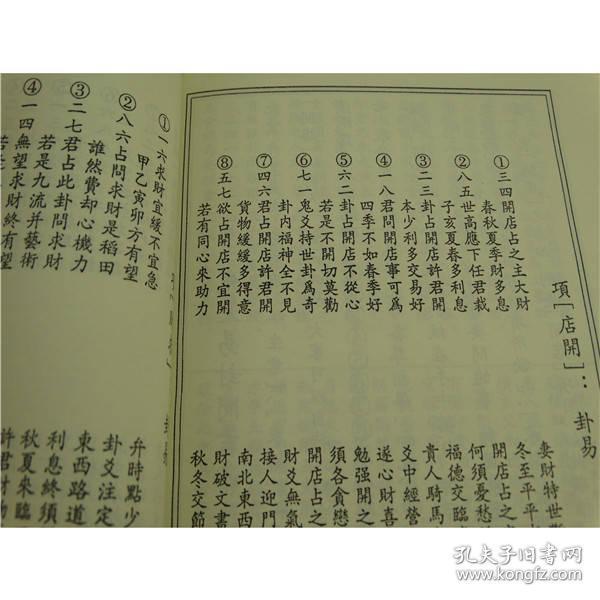 易卦
項[店開]：
①三四開店占之主大財
春秋夏季財多息
②八五世高應下任君栽
子亥夏春多利息
③二三卦占開店許君開
本少利多交易好
④一八君問開店事可爲
四季不如春季好
⑤六二卦占開店不從心
若是不開切莫勸
⑥七一鬼爻持世卦爲奇
卦內福神全不見
⑦四六君占開店許君開
貨物緩緩多得意
⑧五七欲占開店不宜開
若有同心來助力
妻財特世
冬至平平
開店占之
何須憂愁
福德交臨
貴人騎馬
爻中經營
遂心財喜
勉強開之
須各貪戀
開店占之
財爻無氣
接人迎門
南北東西
財破文書
秋冬交節
①一六求財宜緩不宜急
甲乙寅卯方有望
②八六占問求財是稻田
誰然費却心機力
③二七君占此卦問求財
若是九流并藝術
④一四無望求財終有望
若是
弁時點少
卦爻注定
東西路道
利息終須
秋夏來臨
許君財
孔夫子旧书网
www.kongfz.com